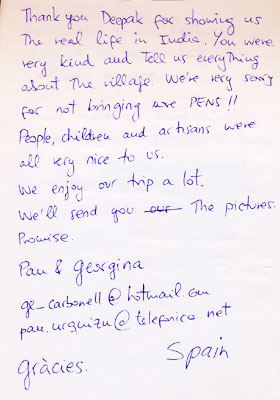 Thank you Deepak for showing us
The real life in India. You were
very kind and Tell us everything
about The village. We're very sorry
for not bringing more PENS!!
People, children and artisans were
all very nice to us.
We enjoy our trip a lot.
We'll send you our The pictures.
Promise.
Pau & Georgina
ge_carbonell@hotmail.com
pau.urquizu@telefonica.net
gràcies.
Spain